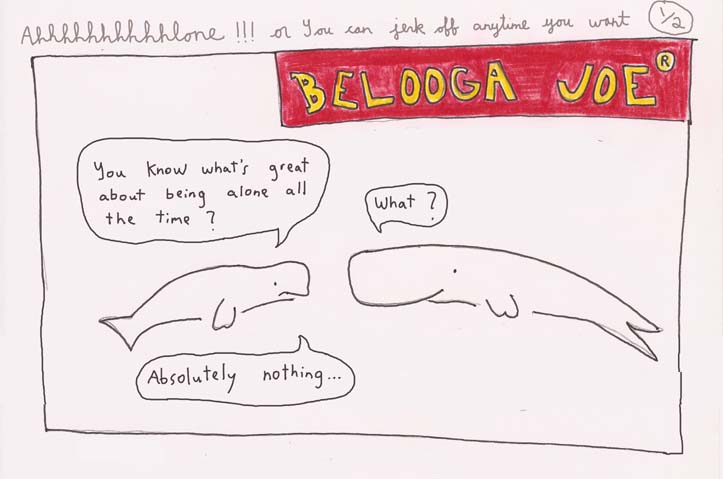 Ahhhhhhhhhhhlone !!! or You can jerk off anytime you want 1/2
BELOOGA JOE®
You know what's great
about being alone all
the time ?
What ?
Absolutely nothing...